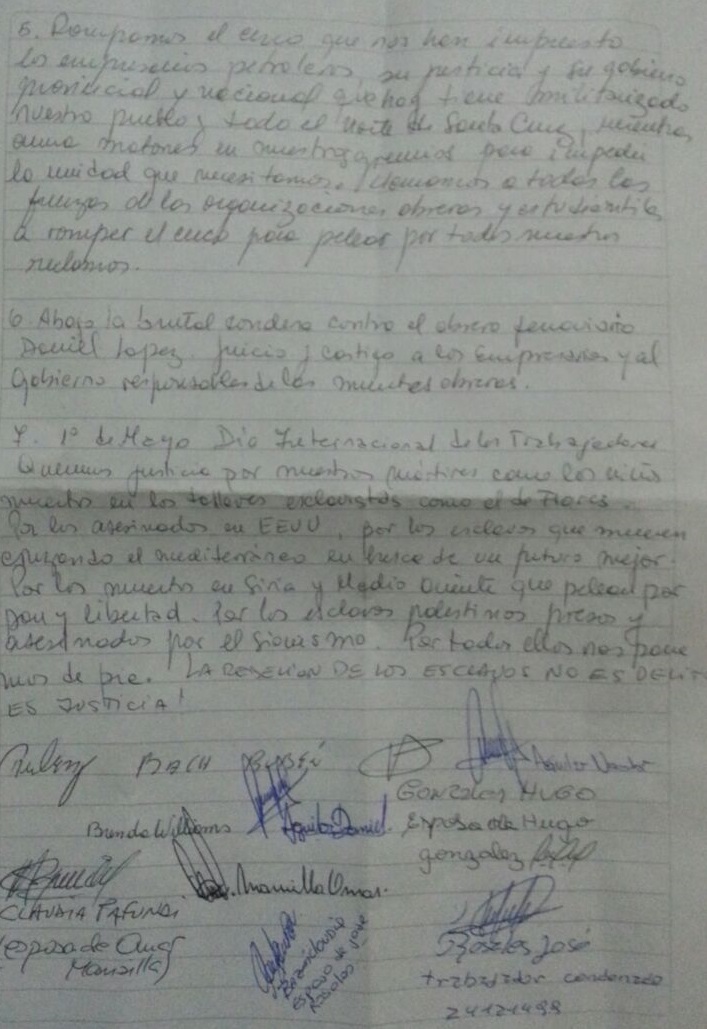 5. Rompamos el cerco que nos han impuesto
los empresarios petroleros, su justicia y su gobierno
provincial y nacional que hoy tiene militarizado
nuestro pueblo y todo el norte de Santa Cruz, mientras
arma matones en nuestros gremios para impedir
la unidad que necesitamos. Llamamos a todas las
fuerzas de las organizaciones obreras y estudiantiles
a romper el cerco para pelear por todos nuestros
reclamos.
6. Abajo la brutal condena contra el obrero ferroviario
Daniel Lopez. Juicio y castigo a los Empresarios y al
Gobierno responsables de las muertes obreras.
7. 1º de Mayo Día Internacional de los Trabajadores
Queremos justicia por nuestros mártires como los niños
muertos en los talleres esclavistas como el de Flores.
Por los asesinados en EEUU, por los esclavos que mueren
cruzando el mediterráneo en busca de un futuro mejor.
Por los muertos en Siria y Medio Oriente que pelean por
pan y libertad. Por los esclavos palestinos presos y
asesinados por el sionismo. Por todos ellos nos pone
mos de pie. LA REBELION DE LOS ESCLAVOS NO ES DELITO
ES JUSTICIA!
BACH RUBÉN
Aguilar
GONZALES HUGO
Aguilar Daniel. Esposa de Hugo
gonzalez
Mansilla Omar.
CLAUDIA PAFUNDI
(esposa de Omar
Mansilla)
esposa de José
Rosales
Rosales José
trabajador condenado
24121498